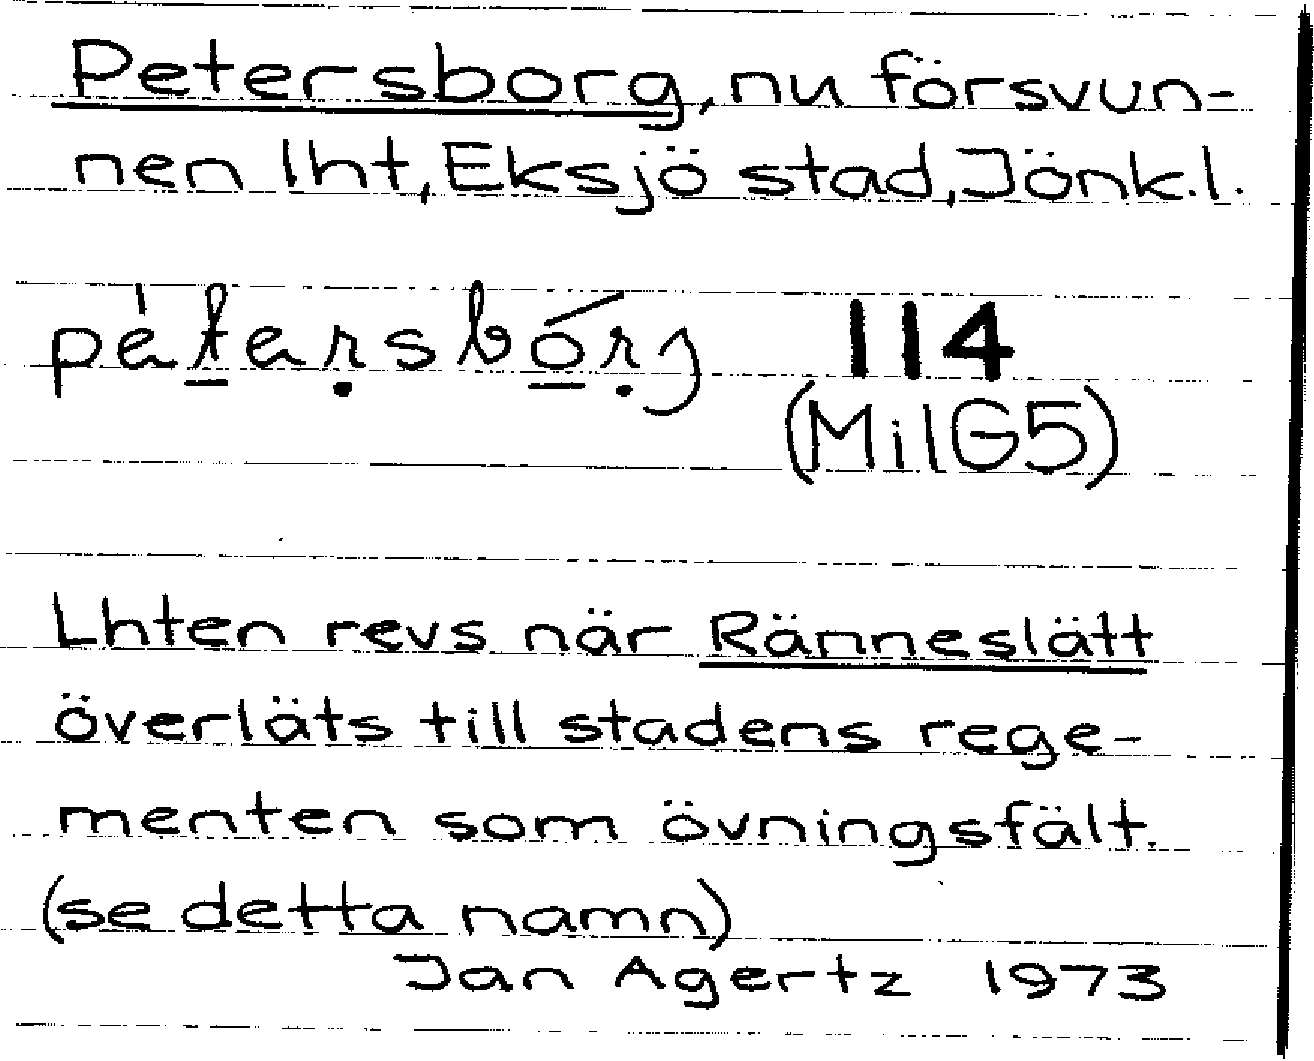 Petersborg, nu försvun-
nen lht, Eksjö stad, Jönk.l.
pètersbórj 114
(MilG5)
Lhten revs när Ränneslätt
överläts till stadens rege-
menten som övningsfält.
(se detta namn)
Jan Agertz 1973